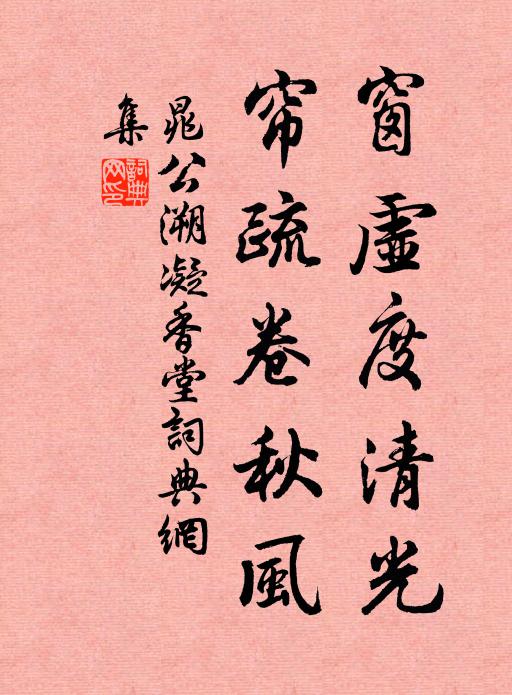 窗虛度清光
帘疏卷秋風
晁公溯凝香堂詞典網
集
詞典網印